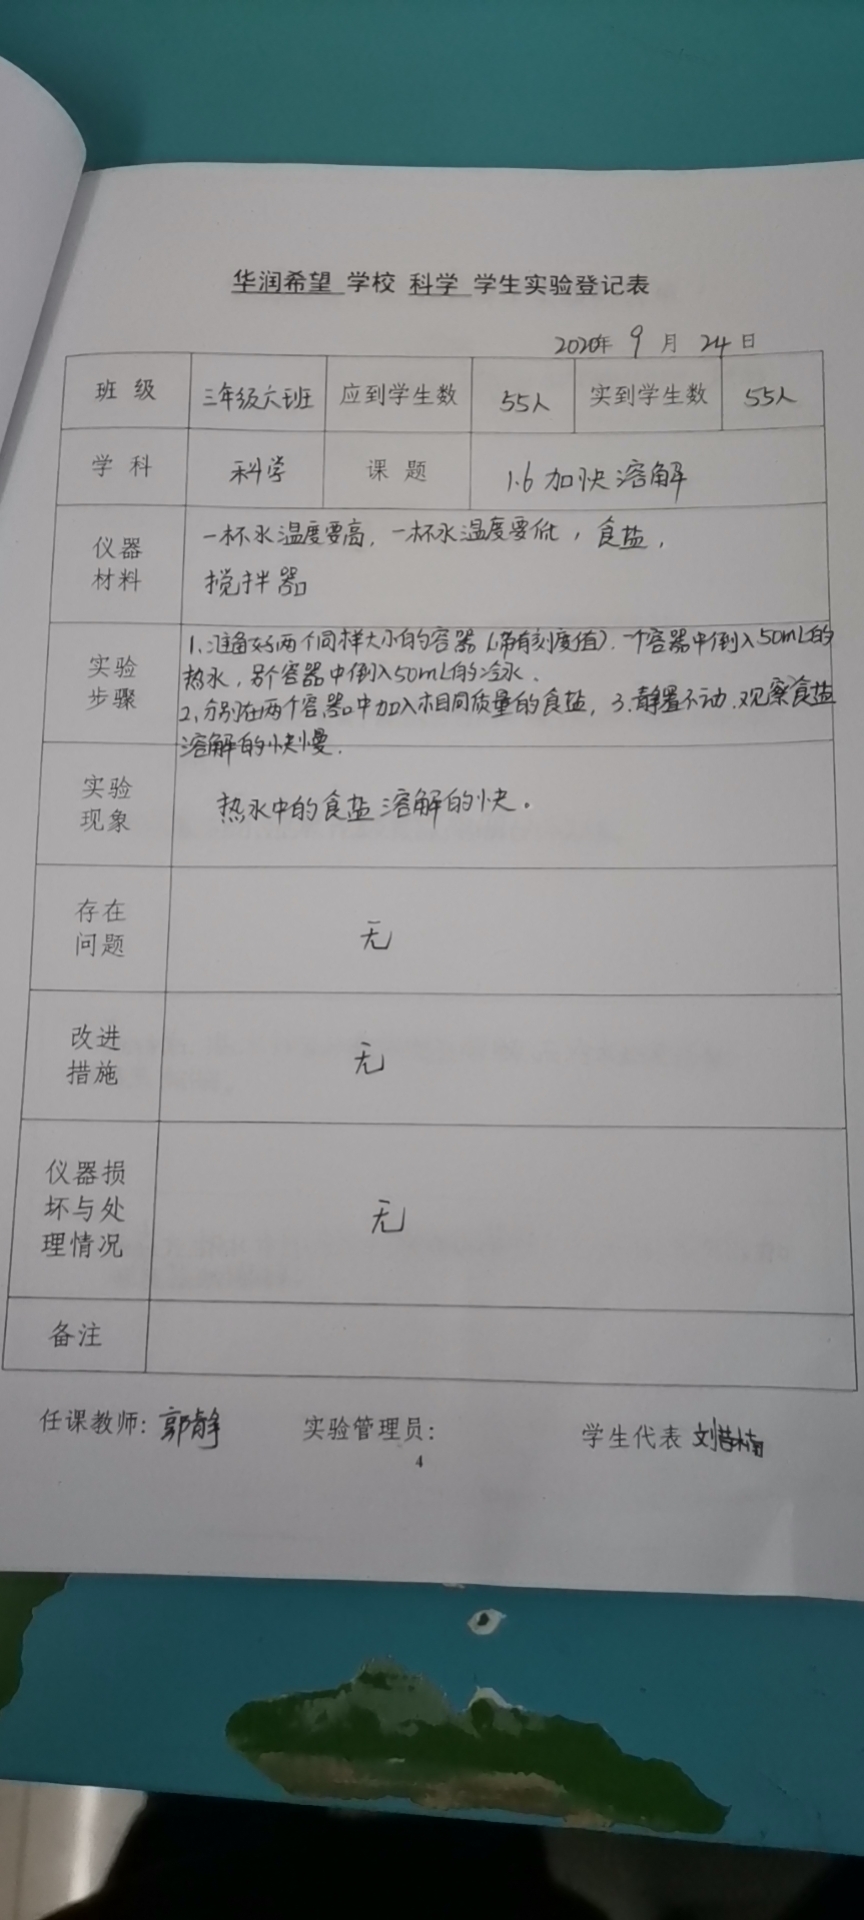 华润希望 学校 科学 学生实验登记表
2020年 9 月 24 日
班 级 三年级六班 应到学生数 55人 实到学生数 55人
学 科 科学 课 题 1.6 加快溶解
仪器
材料
一杯水温度要高，一杯水温度要低，食盐，
搅拌器
实验
步骤
1、准备好两个同样大小的容器（带有刻度值）.一个容器中倒入50mL的
热水，另个容器中倒入50mL的冷水.
2、分别在两个容器中加入相同质量的食盐，3.静置不动.观察食盐
溶解的快慢.
实验
现象
热水中的食盐溶解的快。
存在
问题
无
改进
措施
无
仪器损
坏与处
理情况
无
备注
任课教师: 郭静 实验管理员: 学生代表
4